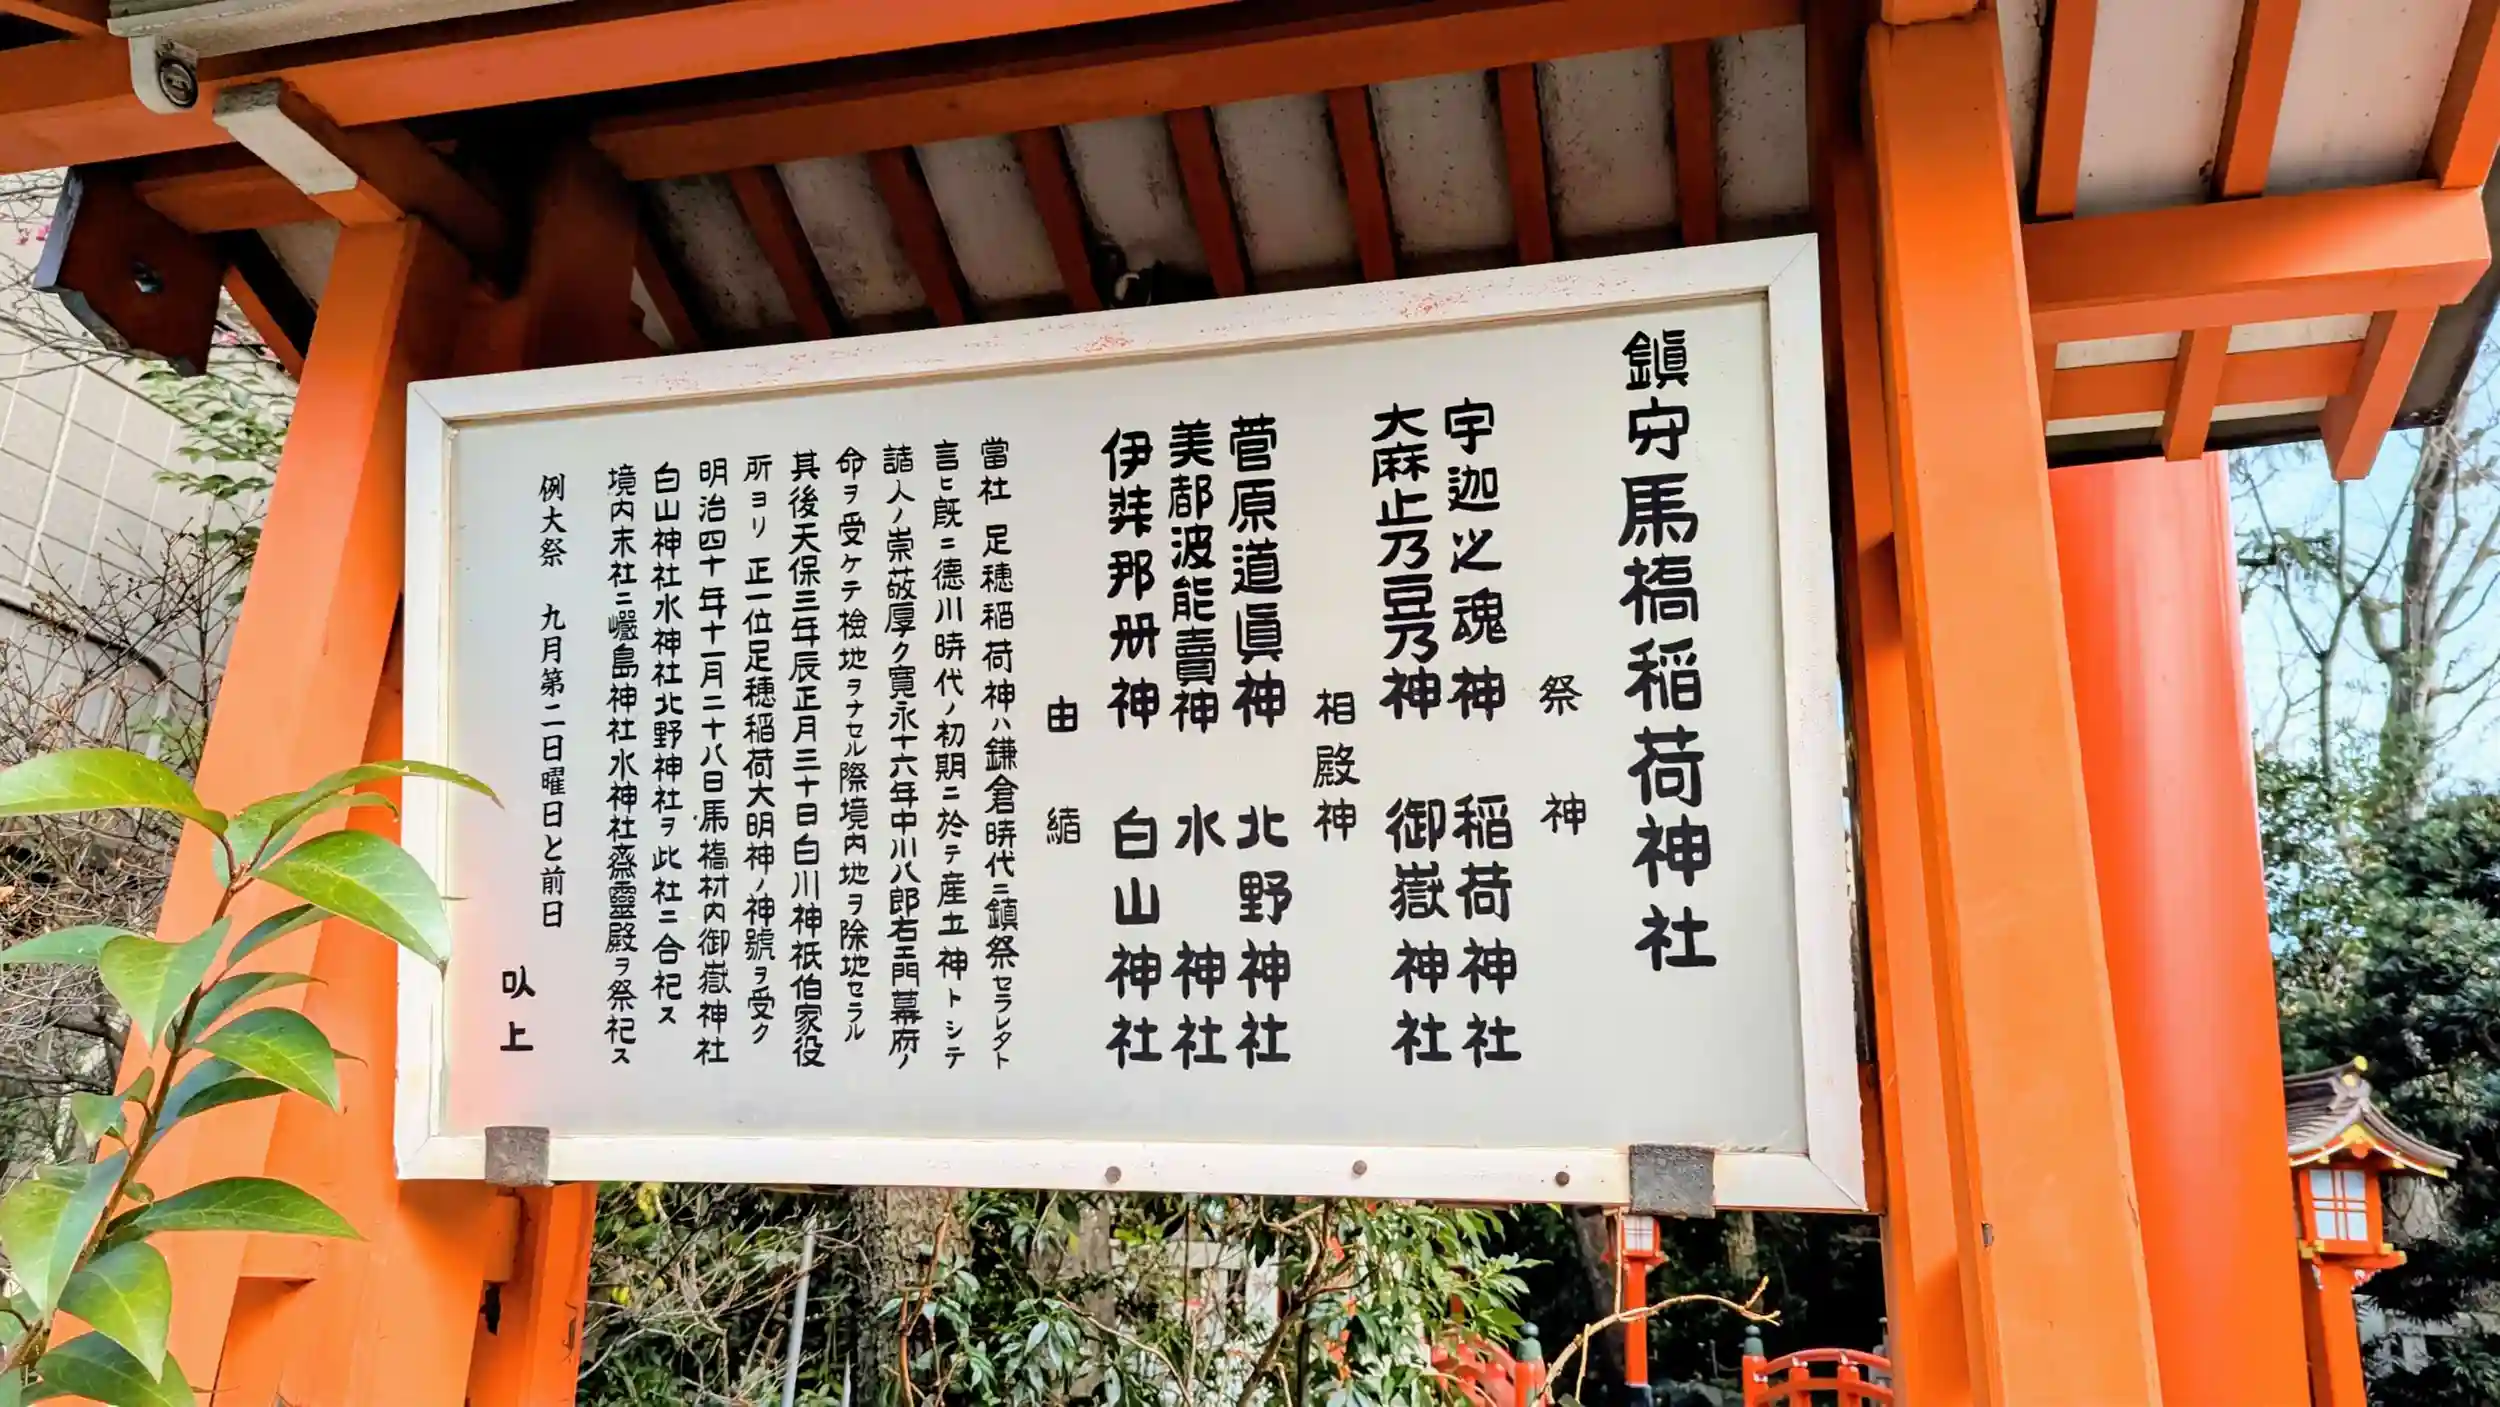 鎮守馬橋稲荷神社
祭神
宇迦之魂神 稲荷神社
大麻止乃豆乃神 御嶽神社
相殿神
菅原道眞神 北野神社
美都波能賣神 水神社
伊弉那册神 白山神社
由緒
當社 足穂稲荷神ハ鎌倉時代ニ鎮祭セラレタト
言ヒ既ニ德川時代ノ初期ニ於テ産立神トシテ
諸人ノ崇敬厚ク寛永十六年中川八郎右エ門幕府ノ
命ヲ受ケテ検地ヲナセル際境内地ヲ除地セラル
其後天保三年辰正月三十日白川神祇伯家役
所ヨリ 正一位足穂稲荷大明神ノ神號ヲ受ク
明治四十年十一月二十八日馬橋村内御嶽神社
白山神社水神社北野神社ヲ此社ニ合祀ス
境内末社ニ巖島神社水神社齋靈殿ヲ祭祀ス
例大祭 九月第二日曜日と前日
以上